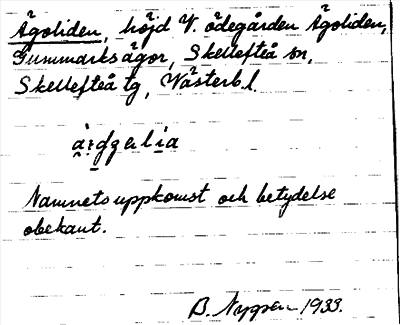 Ågoliden, höjd V. ödegården Ågoliden,
Gummarks ägor, Skellefteå sn,
Skellefteå tg, Västerb. l.
Namnets uppkomst och betydelse
obekant.
B. Nygren 1933.